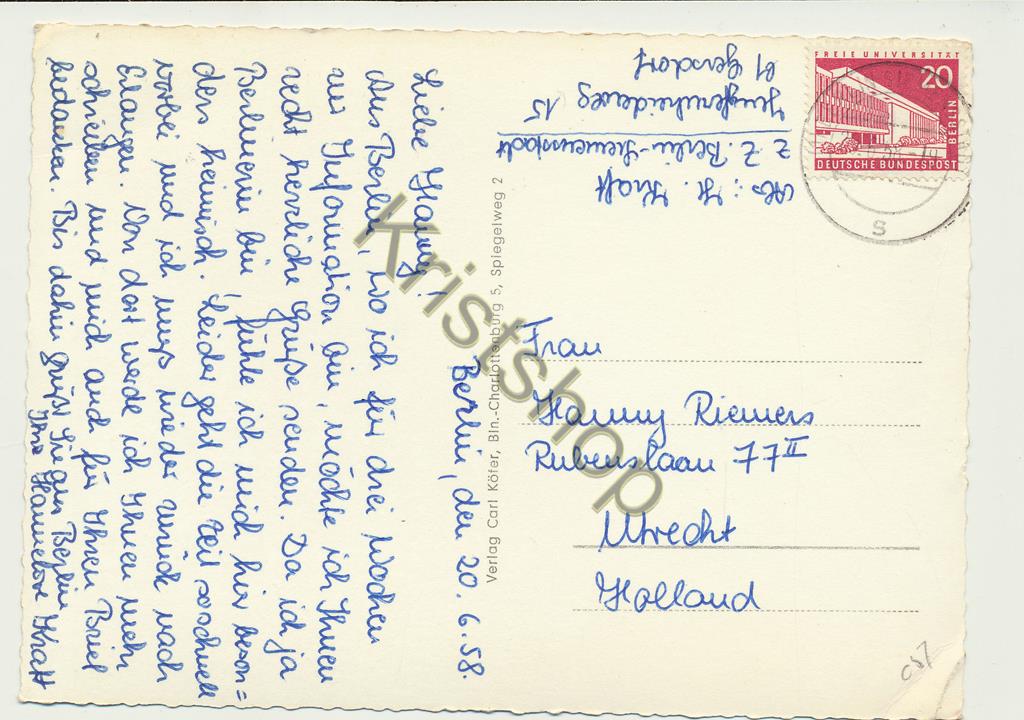 Berlin, den 20.6.58.
Liebe Hanny!
Aus Berlin, wo ich für drei Wochen
zur Information bin, möchte ich Ihnen
recht herzliche Grüße senden. Da ich ja
Berlinerin bin, fühle ich mich hier beson=
ders heimisch. Leider geht die Zeit so schnell
vorbei und ich muß wieder zurück nach
Elangen. Von dort werde ich Ihnen mehr
schreiben und mich auch für Ihren Brief
bedanken. Bis dahin grüßt Sie aus Berlin
Ihre Hannelore Kraft
Verlag Carl Köfer, Bln.-Charlottenburg 5, Spiegelweg 2
Abs.: H. Kraft
z. Z. Berlin-Siemensstadt
Jungfernheideweg 15
bei Gersdorf
FREIE UNIVERSITÄT
20
BERLIN
DEUTSCHE BUNDESPOST
S
Frau
Hanny Riemers
Rubenslaan 77 II
Utrecht
Holland
c87
Kristshop